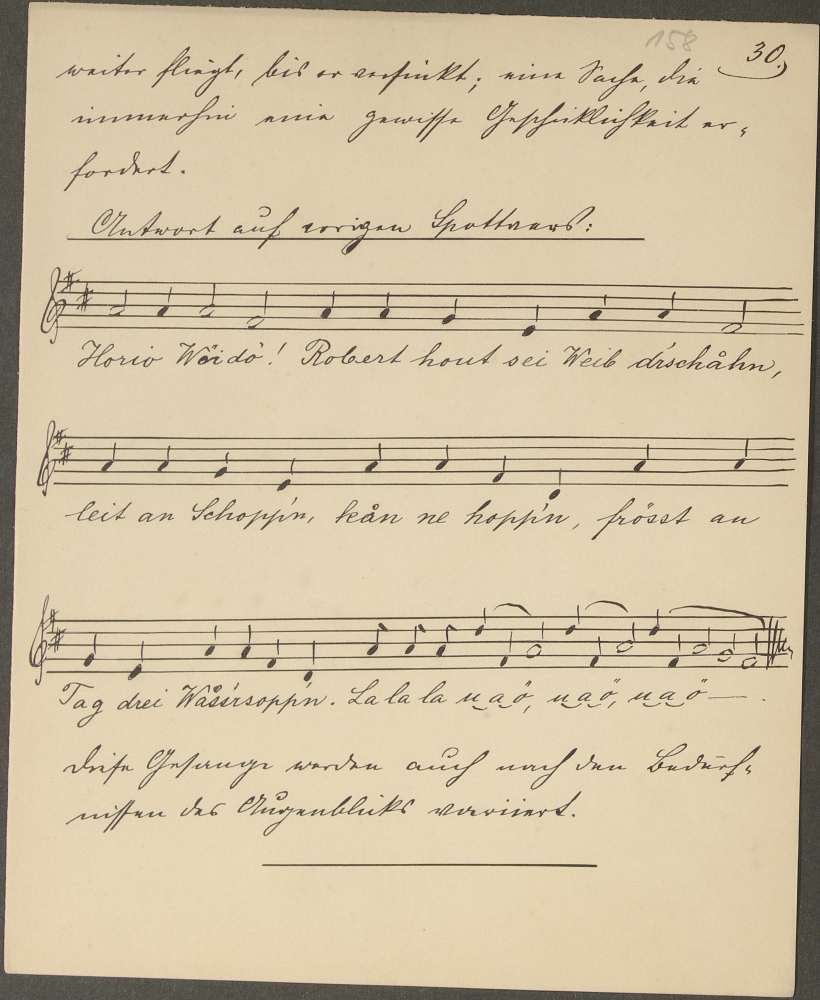 158
30.
weiter fliegt, bis er versinkt; eine Sache, die
immerhin eine gewisse Geschicklichkeit er-
fordert.
Antwort auf vorigen Spottvers:
Horio Wöidò! Robert hout sei Weib dr'schåhn,
leit an Schopp'n, kån ne hopp'n, frösst au
Tag drei Wåss'rsopp'n. La la la u a ö, u a ö, u a ö — .
Diese Gesänge werden auch nach den Bedürf-
nissen des Augenblicks variiert.